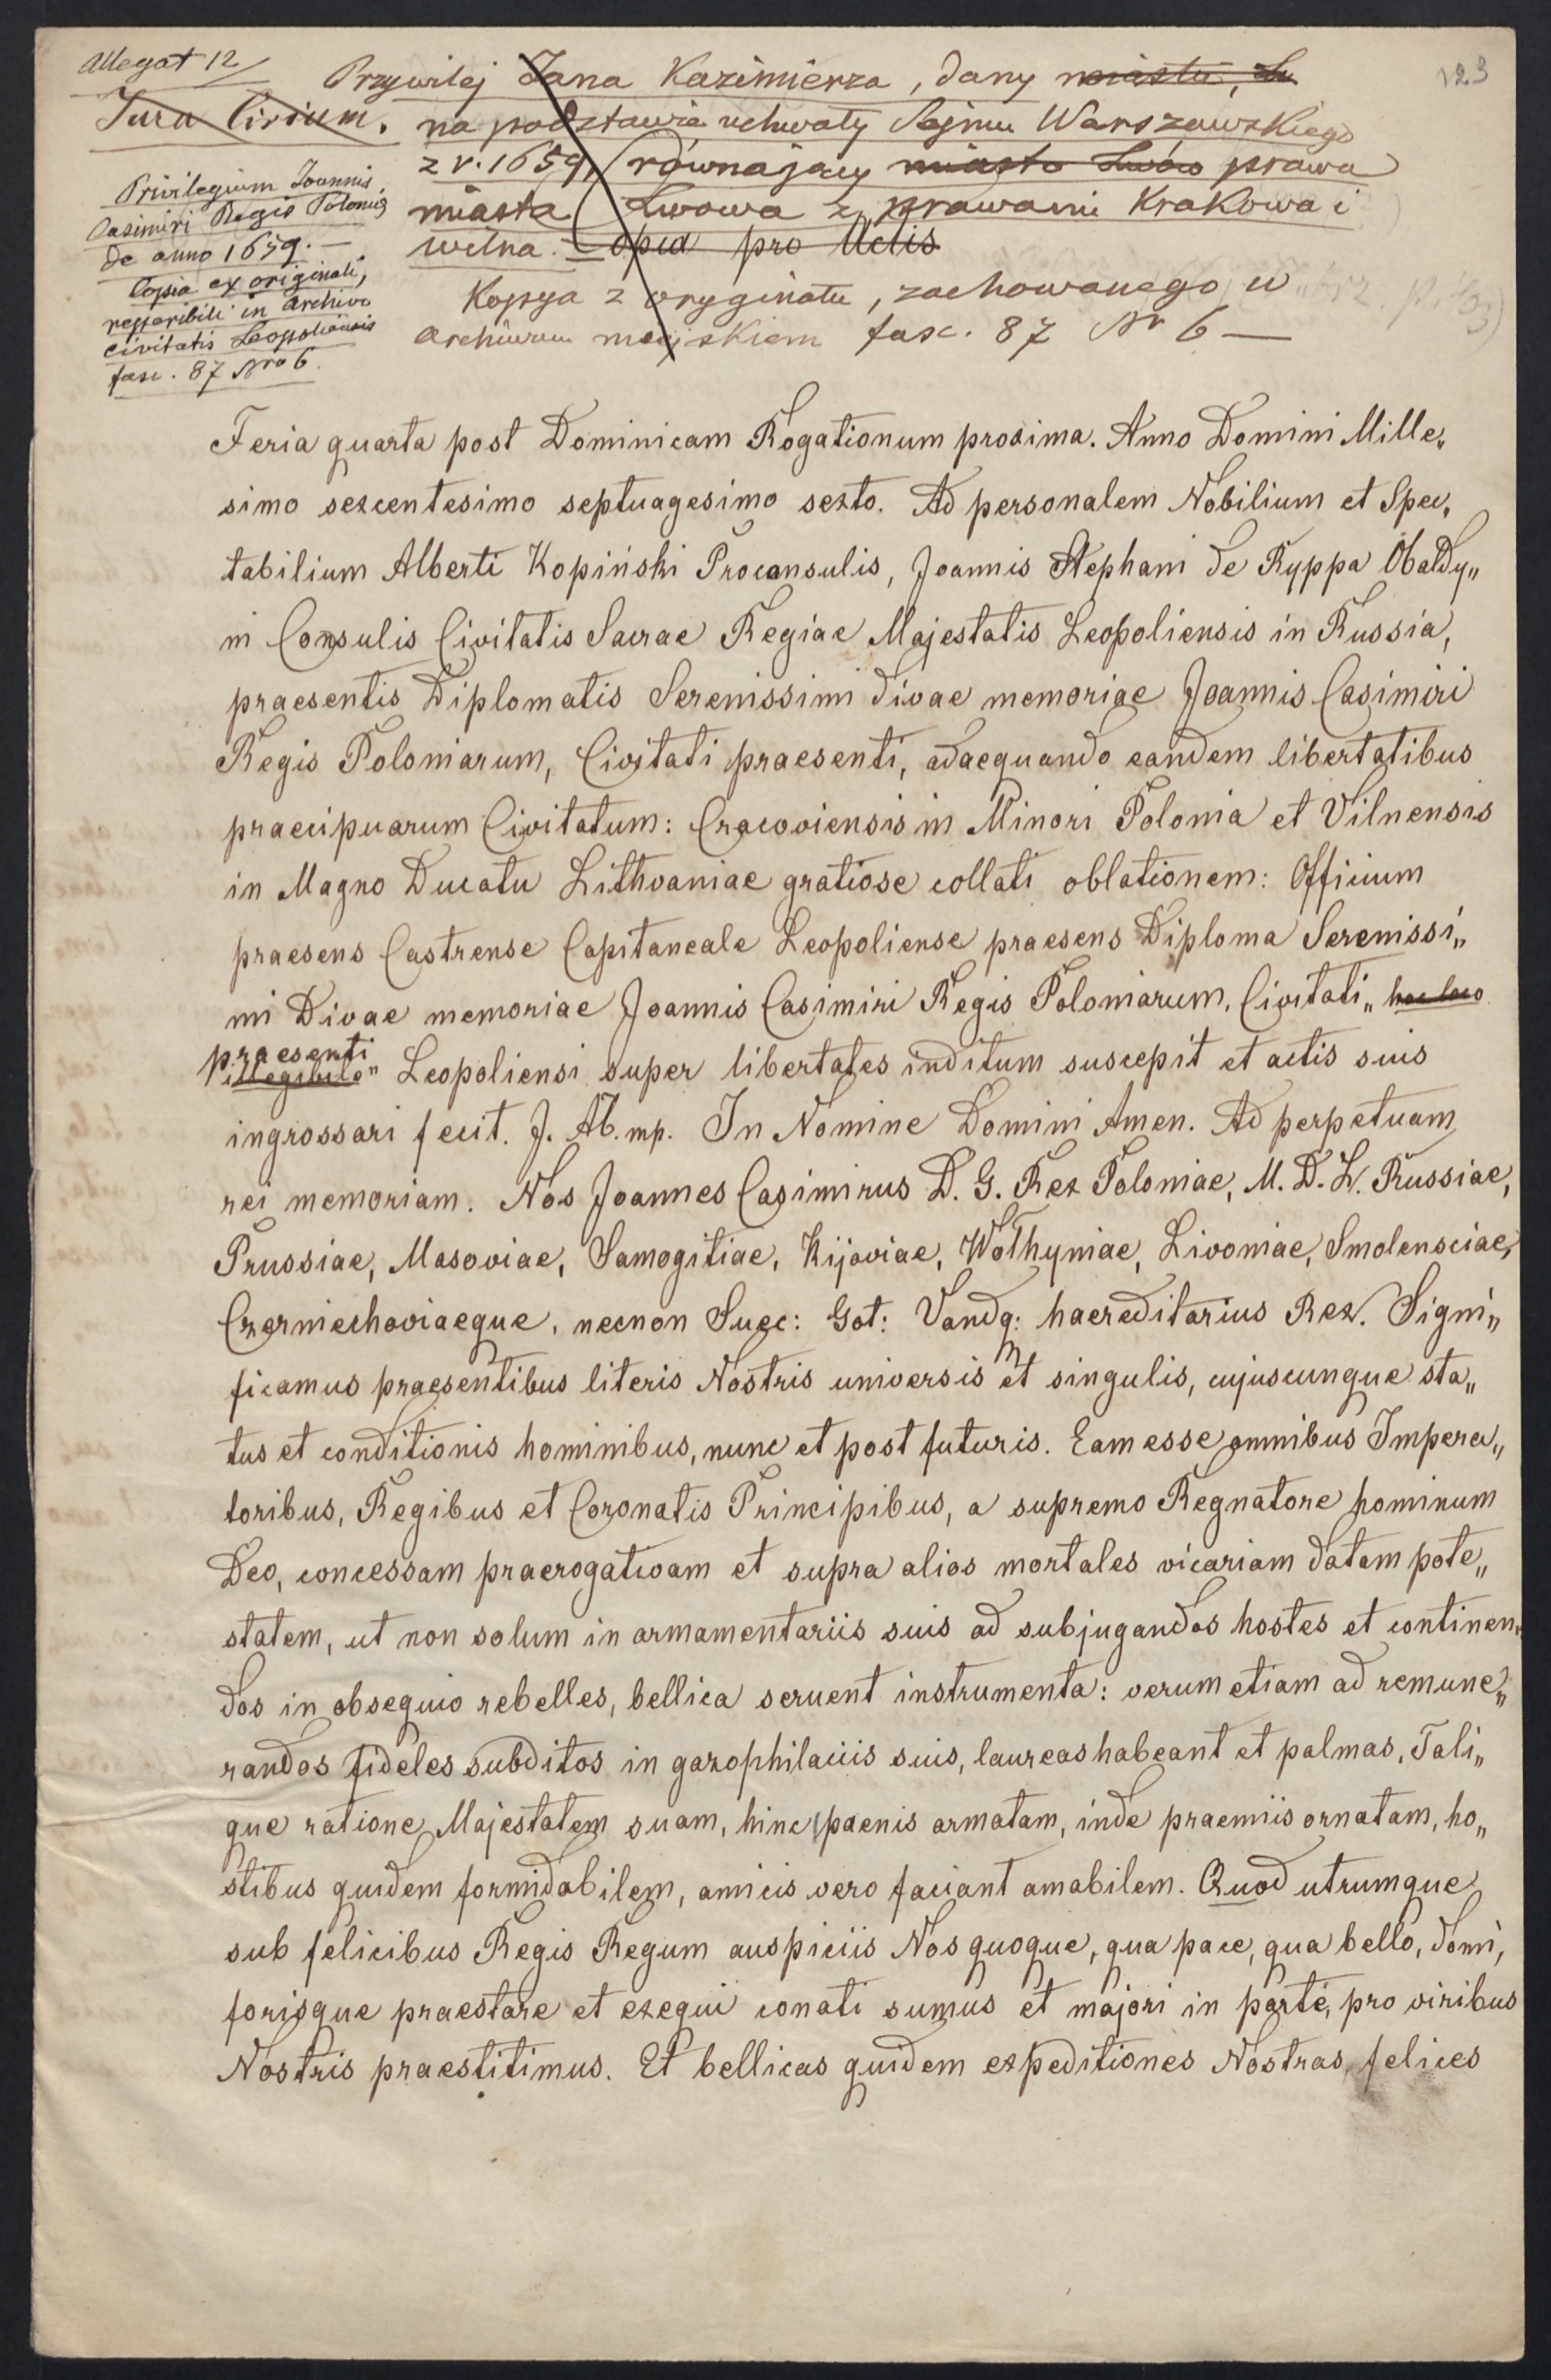 Allegat 12/
123
Jura Civium.
Privilegium Joannis
Casimiri Regis Poloniæ
de anno 1659. —
Copia ex originali,
reperibili in Archivo
civitatis Leopoliensis
fasc. 87 Nro 6.
Przywilej Jana Kazimierza, dany miastu, Lw
na podstawie uchwały Sejmu Warszawskiego
z r. 1659, (równający miasto Lwów prawa
miasta (Lwowa z prawami Krakowa i
Wilna. — Copia pro Actis
Kopya z oryginału, zachowanego w
Archiwum miejskiem fasc. 87 Nr 6 —
Feria quarta post Dominicam Rogationum proxima. Anno Domini Mille„
simo sexcentesimo septuagesimo sexto. Ad personalem Nobilium et Spec„
tabilium Alberti Kopiński Proconsulis, Joannis Stephani de Ryppa Ubaldy„
ni Consulis Civitatis Sacrae Regiae Majestatis Leopoliensis in Russia,
praesentis Diplomatis Serenissimi divae memoriae Joannis Casimiri
Regis Poloniarum, Civitati praesenti, adaequando eandem libertatibus
praecipuarum Civitatum: Cracoviensis in Minori Polonia et Vilnensis
in Magno Ducatu Lithvaniae gratiose collati oblationem: Officium
praesens Castrense Capitaneale Leopoliense praesens Diploma Serenissi„
mi Divae memoriae Joannis Casimiri Regis Poloniarum, Civitati „hoc loco
praesenti
illegibile" Leopoliensi super libertates inditum suscepit et actis suis
ingrossari fecit. J. Ab. mp. In Nomine Domini Amen. Ad perpetuam
rei memoriam. Nos Joannes Casimirus D. G. Rex Poloniae, M. D. L. Russiae,
Prussiae, Masoviae, Samogitiae, Kijoviae, Wolhyniae, Livoniae, Smolensciae,
Czerniechoviaeque, necnon Suec: Got: Vandq: haereditarius Rex. Signi„
ficamus praesentibus literis Nostris universis et singulis, cujuscunque sta„
tus et conditionis hominibus, nunc et post futuris. Eam esse omnibus Impera„
toribus, Regibus et Coronatis Principibus, a supremo Regnatore hominum
Deo, concessam praerogativam et supra alios mortales vicariam datam pote„
statem, ut non solum in armamentariis suis ad subjugandos hostes et continen„
dos in obsequio rebelles, bellica servent instrumenta: verum etiam ad remune„
randos fideles subditos in gazophilaciis suis, laureas habeant et palmas, Tali„
que ratione Majestatem suam, hinc paenis armatam, inde praemiis ornatam, ho„
stibus quidem formidabilem, amicis vero faciant amabilem. Quod utrumque
sub felicibus Regis Regum auspiciis Nos quoque, qua pace, qua bello, domi,
forisque praestare et exequi conati sumus et majori in parte, pro viribus
Nostris praestitimus. Et bellicas quidem expeditiones Nostras, felices